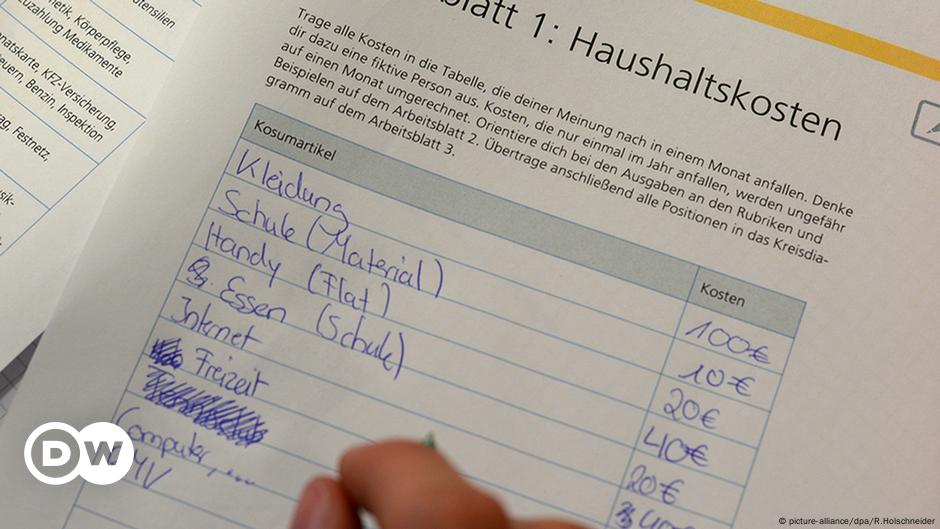 etik, Körperpflege,
uzahlung Medikamente
natskarte, KFZ-Versicherung,
euern, Benzin, Inspektion
Festnetz,
blatt 1: Haushaltskosten
Trage alle Kosten in die Tabelle, die deiner Meinung nach in einem Monat anfallen. Denke
dir dazu eine fiktive Person aus. Kosten, die nur einmal im Jahr anfallen, werden ungefähr
auf einen Monat umgerechnet. Orientiere dich bei den Ausgaben an den Rubriken und
Beispielen auf dem Arbeitsblatt 2. Übertrage anschließend alle Positionen in das Kreisdia-
gramm auf dem Arbeitsblatt 3.
Kosumartikel Kosten
Kleidung 100€
Schule (Material) 10€
Handy (Flat) 20€
Essen (Schule) 40€
Internet 20€
Freizeit
Computer,....
DW
© picture-alliance/dpa/R.Holschneider